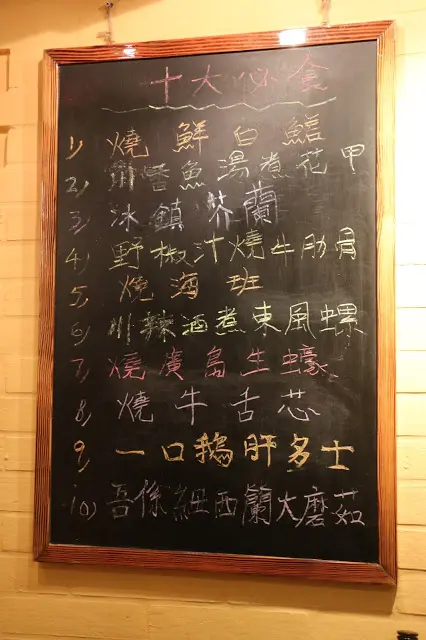 十大必食
1) 燒鮮白鱔
2) 魚湯煮花甲
3) 冰鎮芥蘭
4) 野椒汁燒牛肋骨
5) 燒海班
6) 川辣酒煮東風螺
7) 燒廣島生蠔
8) 燒牛舌芯
9) 一口鵝肝多士
10) 吾係紐西蘭大磨菇